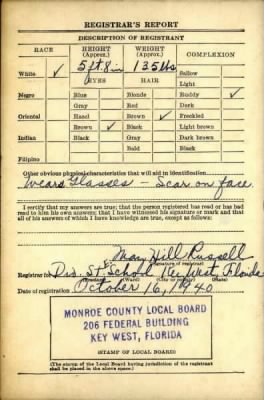 REGISTRAR'S REPORT
DESCRIPTION OF REGISTRANT
RACE HEIGHT (Approx.) WEIGHT (Approx.) COMPLEXION
White ✓ 5 ft 8 in 135 lbs Sallow
EYES HAIR Light
Negro Blue Blonde Ruddy ✓
Gray Red Dark
Oriental Hazel Brown ✓ Freckled
Brown ✓ Black Light brown
Indian Black Gray Dark brown
Bald Black
Filipino
Other obvious physical characteristics that will aid in identification
Wears Glasses - Scar on face.
I certify that my answers are true; that the person registered has read or has
read to him his own answers; that I have witnessed his signature or mark and that
all of his answers of which I have knowledge are true, except as follows:
Mary Hill Russell
(Signature of registrar)
Registrar for School Key West, Florida
(Precinct) (Ward) (City or county) (State)
Date of registration October 16, 1940
MONROE COUNTY LOCAL BOARD
206 FEDERAL BUILDING
KEY WEST, FLORIDA
(STAMP OF LOCAL BOARD)
(The stamp of the Local Board having jurisdiction of the registrant
shall be placed in the above space.)